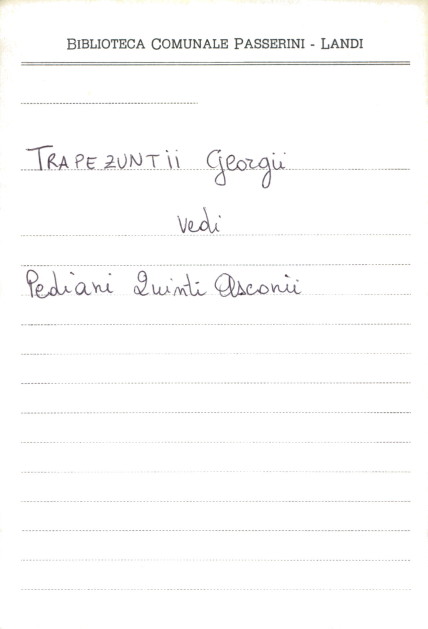 BIBLIOTECA COMUNALE PASSERINI - LANDI
TRAPEZUNTII Georgii
vedi
Pediani Quinti Asconii